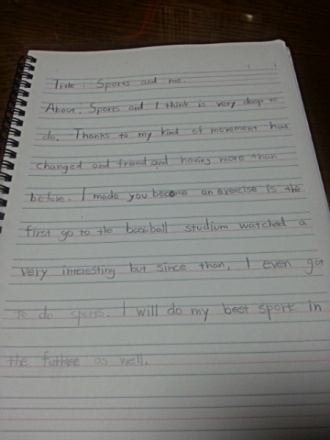 Title : Sports and me.
About. Sports and I think is very deep to
do. Thanks to my kind of movement has
changed and friend and having more than
before. I made you become an exercise is the
first go to the baseball studium watched a
very interesting but since than, I even got
to do sports. I will do my best sport in
the futree as well.